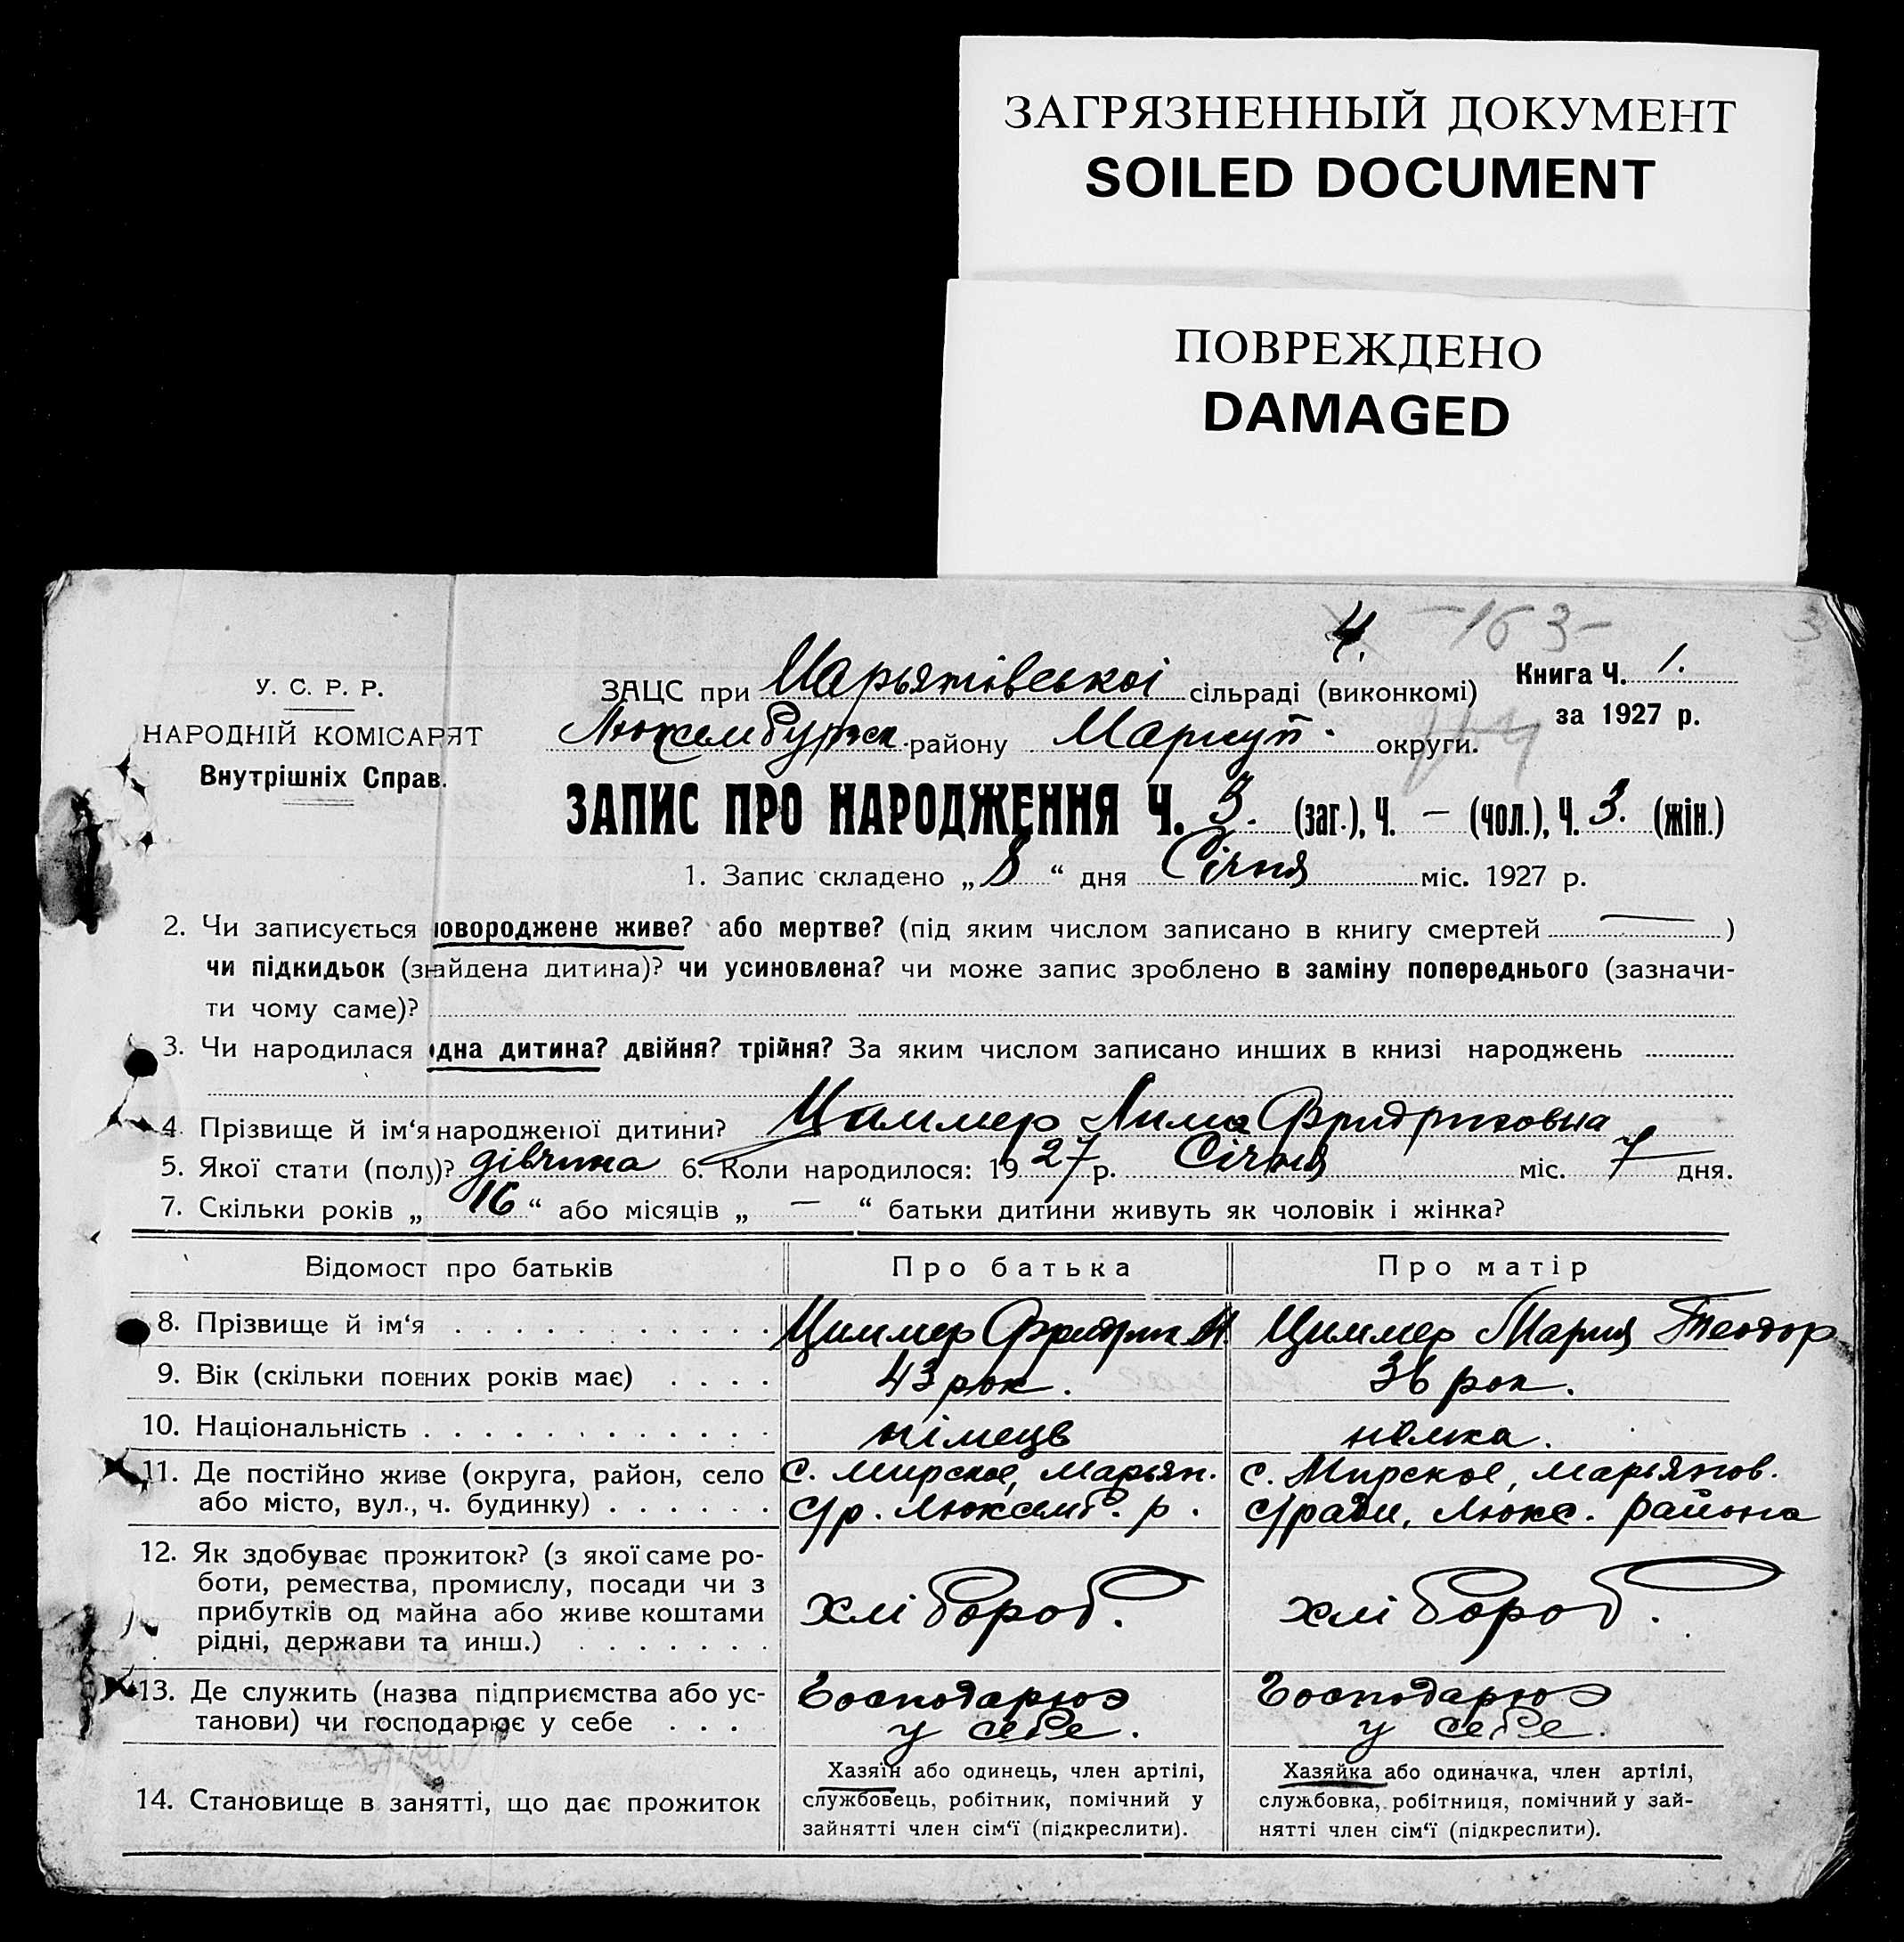 ЗАГРЯЗНЕННЫЙ ДОКУМЕНТ
SOILED DOCUMENT
ПОВРЕЖДЕНО
DAMAGED
4. -163- 3
У. С. Р. Р.
НАРОДНІЙ КОМІСАРЯТ
Внутрішніх Справ.
ЗАЦС при Марьянівської сільраді (виконкомі)
Книга Ч. 1.
за 1927 р.
Люксембурзк. району Мариуп. округи.
ЗАПИС ПРО НАРОДЖЕННЯ Ч. 3. (заг.), Ч. — (чол.), Ч. 3. (жін.)
1. Запис складено „ 8 “ дня Січня міс. 1927 р.
2. Чи записується новороджене живе? або мертве? (під яким числом записано в книгу смертей — )
чи підкидьок (знайдена дитина)? чи усиновлена? чи може запис зроблено в заміну попереднього (зазначи-
ти чому саме)?
3. Чи народилася одна дитина? двійня? трійня? За яким числом записано инших в книзі народжень
4. Прізвище й ім‘я народженої дитини? Циммер Лима Фридриховна
5. Якої стати (полу)? дівчина 6. Коли народилося: 1927 р. Січня міс. 7 дня.
7. Скільки років „ 16 “ або місяців „ — “ батьки дитини живуть як чоловік і жінка?
Відомост про батьків Про батька Про матір
8. Прізвище й ім‘я Циммер Фридрих Циммер Мария Теодор
9. Вік (скільки повних років має) 43 рок. 36 рок.
10. Національність німець немка.
11. Де постійно живе (округа, район, село с. Мирское, Марьян. с. Мирское, Марьянов.
або місто, вул., ч. будинку) с/р. Люксемб. р. с/ради, Люкс. района
12. Як здобуває прожиток? (з якої саме ро-
боти, ремества, промислу, посади чи з
прибутків од майна або живе коштами хлібороб. хлібороб.
рідні, держави та инш.)
13. Де служить (назва підприємства або ус- Господарює Господарює
танови) чи господарює у себе у себе. у себе.
14. Становище в занятті, що дає прожиток
Хазяїн або одинець, член артілі,
службовець, робітник, помічний у
зайнятті член сім‘ї (підкреслити).
Хазяйка або одиначка, член артілі,
службовка, робітниця, помічний у зай-
нятті член сім‘ї (підкреслити).